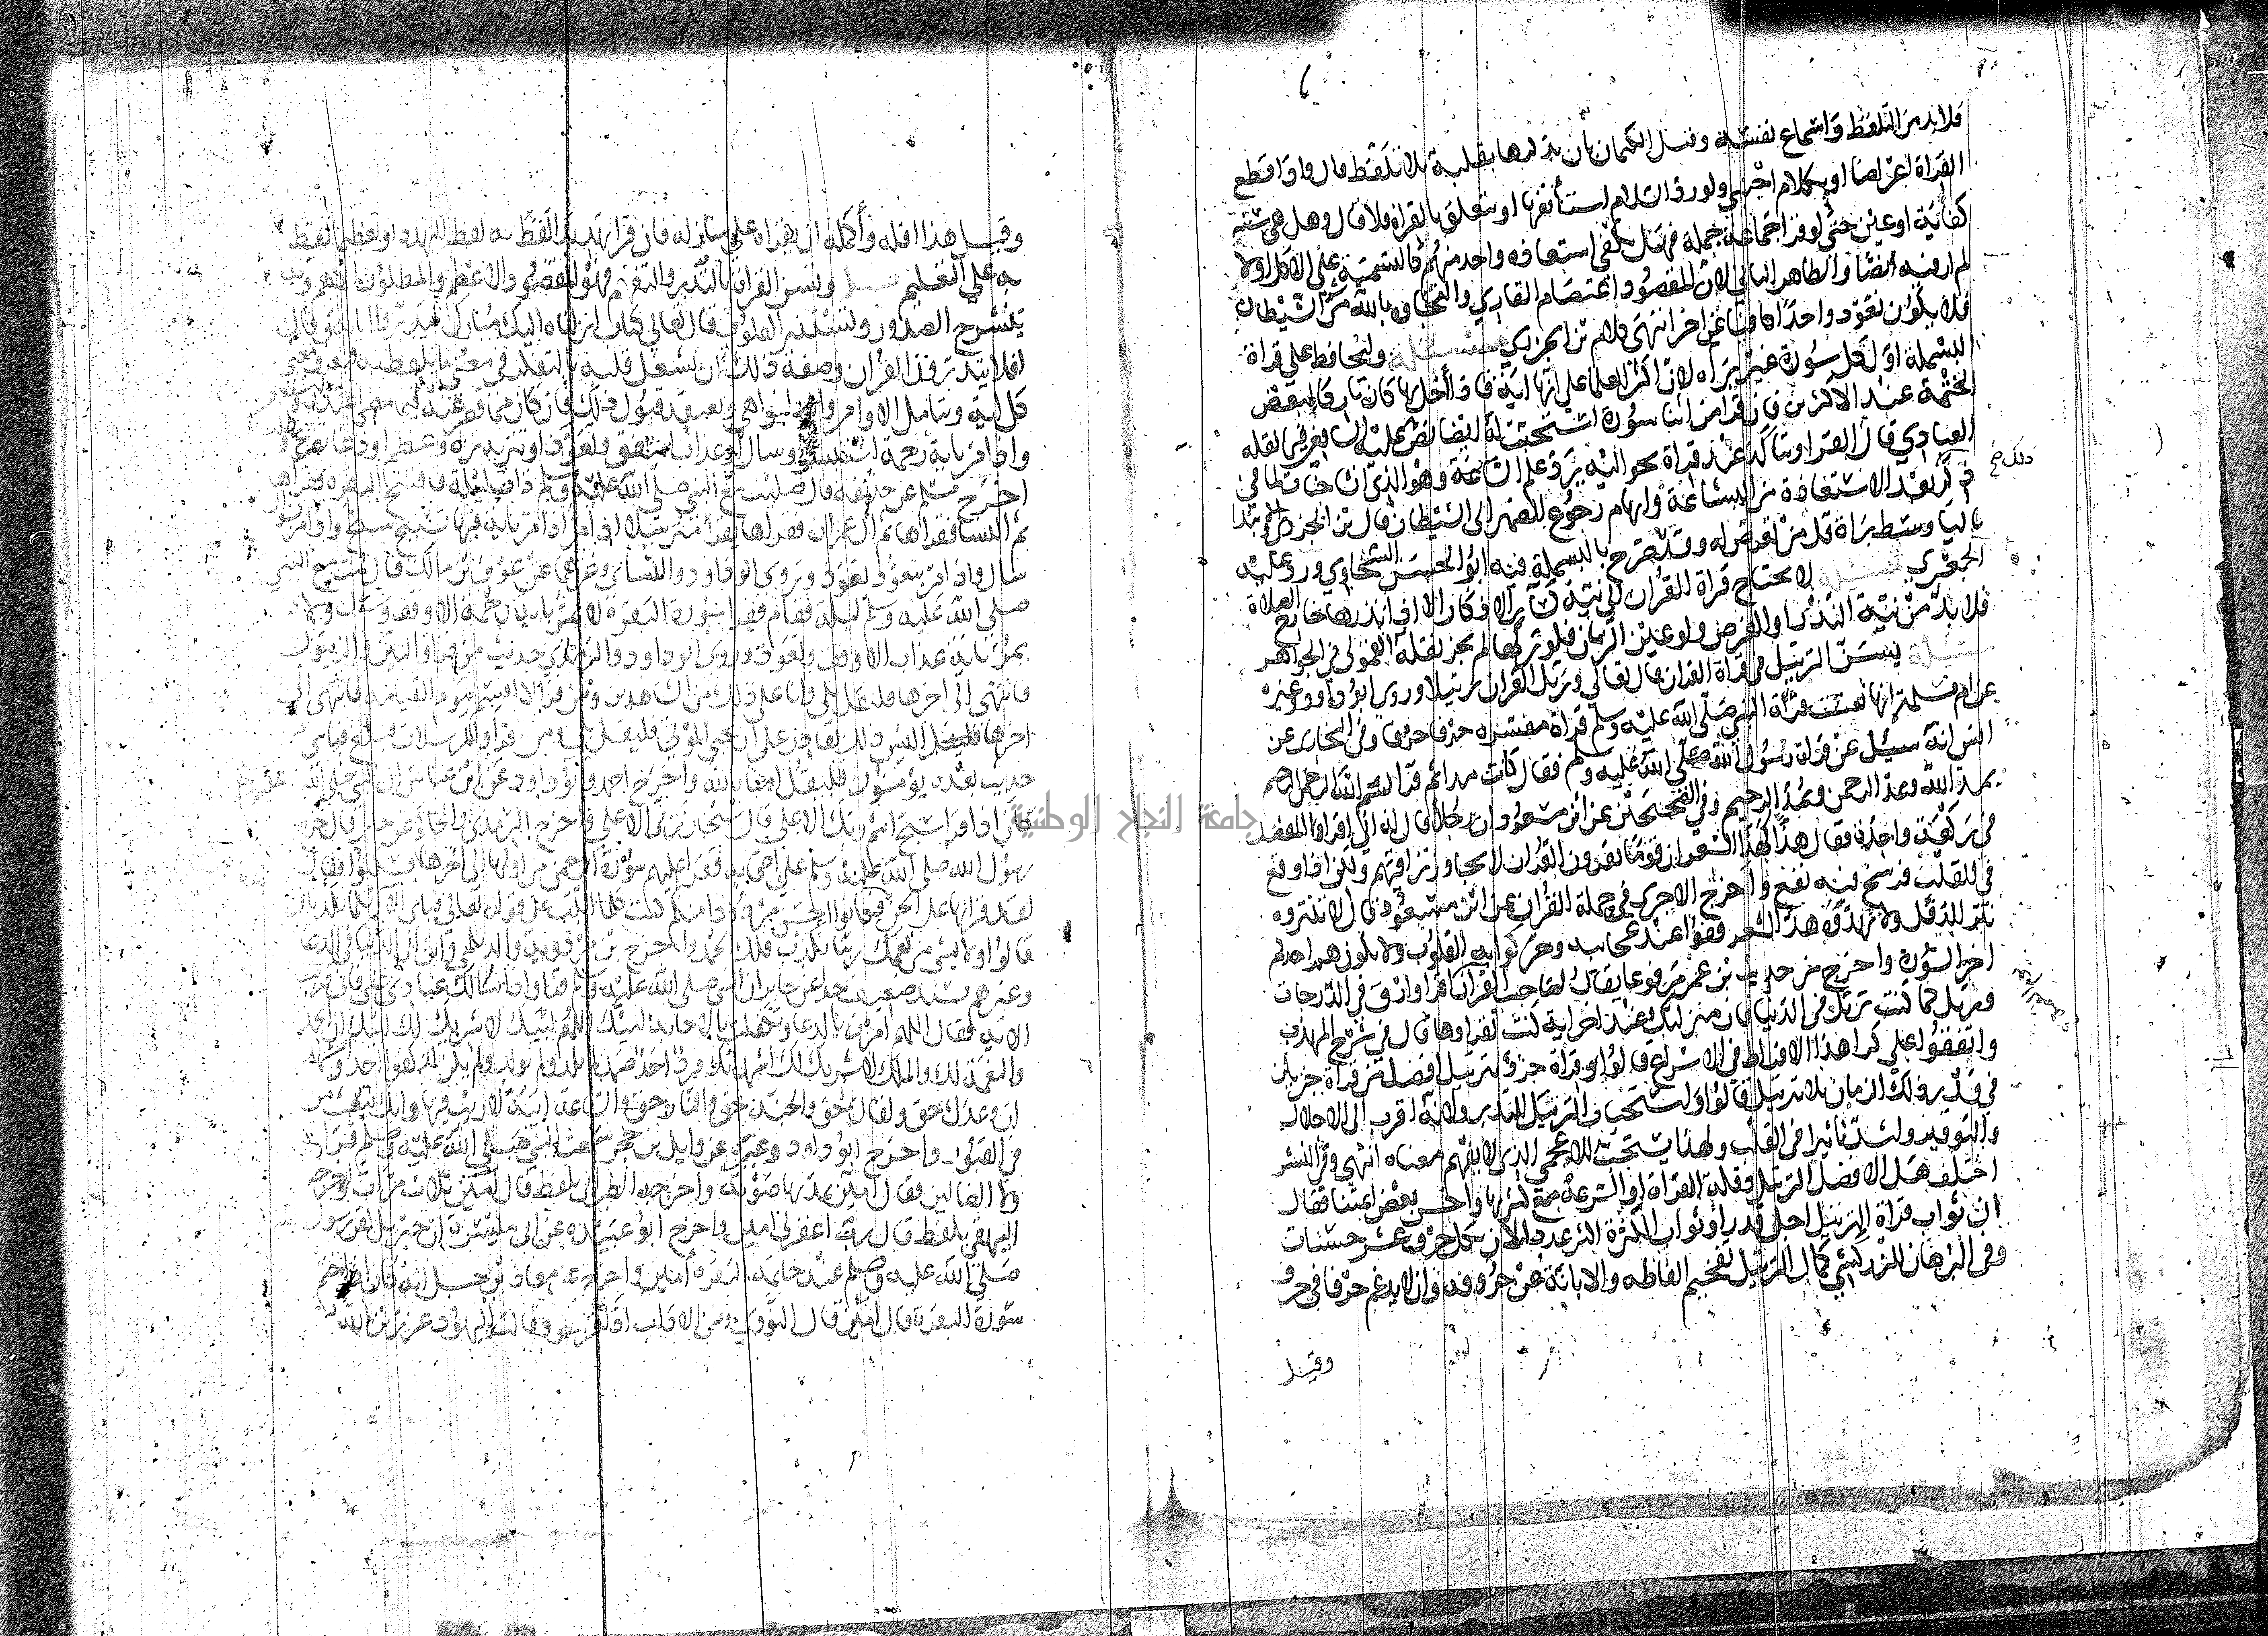 فلا بد من التلفظ واسماع نفسه وقيل الكتمان بان يذكرها بقلبه بلا تلفظ قال واذا قطع
القراة اعراضا او بكلام اجنبي ولو رد السلام استأنفها او يتعلق بالقراة فلا قال وهل هي سنة
كفاية او عين حتى لو قرا جماعة جملة فهل يكفي استعاذة واحد منهم كالتسمية على الاكل او لا
لم ار فيه نصا والظاهر الثاني لان المقصود اعتصام القاري والتجاوه بالله من الشيطان
فلا يكون تعوذ واحد كافيا عن اخر انتهى كلام بن الجزري مسئلة وليحافظ على قراة
البسملة اول كل سورة غير براه لان اكثر العلما على انها اية فاذا اخل بها كان تاركا لبعض
الختمة عند الاكثرين فان قرا من اثنا سورة استحبت له ايضا نص عليه الشافعي فيما نقله
العبادي قال القرا ويتاكد عند قراة نحو اليه يرد علم الساعة وهو الذي انشا جنات لما في
ذكر بعد الاستعاذة من البشاعة وايهام رجوع الضمير الى الشيطان قال بن الجزري والابتدا
بالي وسط براة قل من تعرض له وقد صرح بالبسملة فيه ابو الحسن السخاوي ورد عليه
الجعبري مسئلة لا يحتاج قراة القران الى نية كسائر الاذكار الا اذا نذرها خارج الصلاة
فلا بد من نية النذر او الفرض ولو عين الزمان فلو تركها لم يجز نقله القمولي في الجواهر
مسئلة يسن الترتيل في قراة القران قال تعالى ورتل القران ترتيلا وروى ابو داود وغيره
عن ام سلمة انها نعتت قراة النبي صلى الله عليه وسلم قراة مفسرة حرفا حرفا وفي البخاري عن
انس انه سئل عن قراة رسول الله صلى الله عليه وسلم فقال كانت مدا ثم قرا بسم الله الرحمن الرحيم
يمد الله ويمد الرحمن ويمد الرحيم وفي الصحيحين عن ابن مسعود ان رجلا قال له اني اقرا المفصل
في ركعة واحدة فقال هذا كهذ الشعر ان قوما يقرون القران لا يجاوز تراقيهم ولكن اذا وقع
في القلب فرسخ فيه نفع واخرج الاجري في حملة القران عن ابن مسعود قال لا تنثروه
نثر الدقل ولا تهذوه هذ الشعر قفوا عند عجايبه وحركوا به القلوب ولا يكون هم احدكم
اخر السورة واخرج من حديث بن عمر مرفوعا يقال لصاحب القران اقرا وارق في الدرجات
ورتل كما كنت ترتل في الدنيا فان منزلتك عند اخر اية كنت تقراوها قال في شرح المهذب
واتفقوا على كراهة الافراط في الاسراع قالوا وقراة جزء بترتيل افضل من قراة جزئين
في قدر ذلك الزمان بلا ترتيل قالوا واستحباب الترتيل للتدبر ولانه اقرب الى الاجلال
والتوقير واشد تاثيرا في القلب ولهذا يستحب للاعجمي الذي لا يفهم معناه انتهى وفي النشر
اختلف هل الافضل الترتيل وقلة القراة او السرعة مع كثرتها واحسن بعض ائمتنا فقال
ان ثواب قراة الترتيل اجل قدرا وثواب الكثرة اكثر عددا لان بكل حرف عشر حسنات
وفي البرهان للزركشي كمال الترتيل تفخيم الفاظه والابانة عن حروفه وان لا يدغم حرفا في حرف
وقيل
وقيل هذا اقله وأكمله ان يقراه على منازله فان قرا تهديدا لفظ به لفظ المهدد او تعظيما لفظ
به على التعظيم مسئلة ويسن القراة بالتدبر والتفهم فهو المقصود الاعظم والمطلوب الاهم وبه
تنشرح الصدور وتستنير القلوب قال تعالى كتاب انزلناه اليك مبارك ليدبروا اياته وقال
افلا يتدبرون القران وصفة ذلك ان يشغل قلبه بالتفكر في معنى ما يلفظ به فيعرف معنى
كل اية ويتامل الاوامر والنواهي ويعتقد قبول ذلك فان كان مما قصر عنه فيما مضى اعتذر واستغفر
واذا مر باية رحمة استبشر وسال او عذاب اشفق وتعوذ او تنزيه نزه وعظم او دعا تضرع
اخرج مسلم عن حذيفة قال صليت مع النبي صلى الله عليه وسلم ذات ليلة فافتتح البقرة فقراها
ثم النسا فقراها ثم ال عمران فقراها يقرا مترسلا اذا مر باية فيها تسبيح سبح واذا مر بسوال
سال واذا مر بتعوذ تعوذ وروى ابو داود والنسائي وغيرهما عن عوف بن مالك قال قمت مع النبي
صلى الله عليه وسلم ليلة فقام فقرا سورة البقرة لا يمر باية رحمة الا وقف وسال ولا
يمر باية عذاب الا وقف وتعوذ وروى ابو داود والترمذي حديث من قرا والتين والزيتون
فانتهى الى اخرها فليقل بلى وانا على ذلك من الشاهدين ومن قرا لا اقسم بيوم القيامة فانتهى الى
اخرها اليس ذلك بقادر على ان يحيي الموتى فليقل بلى ومن قرا والمرسلات فبلغ فباي
حديث بعده يؤمنون فليقل امنا بالله واخرج احمد وابو داود عن ابن عباس ان النبي صلى الله
كان اذا قرا سبح اسم ربك الاعلى قال سبحان ربي الاعلى واخرج الترمذي والحاكم عن جابر قال خرج
رسول الله صلى الله عليه وسلم على اصحابه فقرا عليهم سورة الرحمن من اولها الى اخرها فسكتوا فقال
لقد قراتها على الجن فكانوا احسن مردودا منكم كنت كلما اتيت على قوله تعالى فباي الاء ربكما تكذبان
قالوا ولا بشي من نعمك ربنا نكذب فلك الحمد واخرج بن مردويه والديلمي وابن ابي الدنيا في الدعا
وغيرهم بسند ضعيف جدا عن جابر ان النبي صلى الله عليه وسلم قرا واذا سالك عبادي عني فاني قريب
الاية فقال اللهم امرت بالدعا وتكفلت بالاجابة لبيك اللهم لبيك لا شريك لك لبيك ان الحمد
والنعمة لك والملك لا شريك لك اشهد انك فرد احد صمد لم يلد ولم يولد ولم يكن له كفوا احد
ان وعدك حق ولقاك حق والجنة حق والنار حق والساعة اتية لا ريب فيها وانك تبعث من
في القبور واخرج ابو داود وغيره عن وايل بن حجر سمعت النبي صلى الله عليه وسلم قرا
ولا الضالين فقال امين يمد بها صوته واخرجه الطبراني بلفظ قال امين ثلاث مرات واخرجه
البيهقي بلفظ قال رب اغفر لي امين واخرج ابو عبيده عن ابي ميسره ان جبريل لقن رسول
صلى الله عليه وسلم عند خاتمة البقره امين واخرج عن معاذ بن جبل انه كان اذا ختم
سورة البقرة قال امين قال النووي ومن الاداب اذا قرا نحو وقالت اليهود عزير بن الله